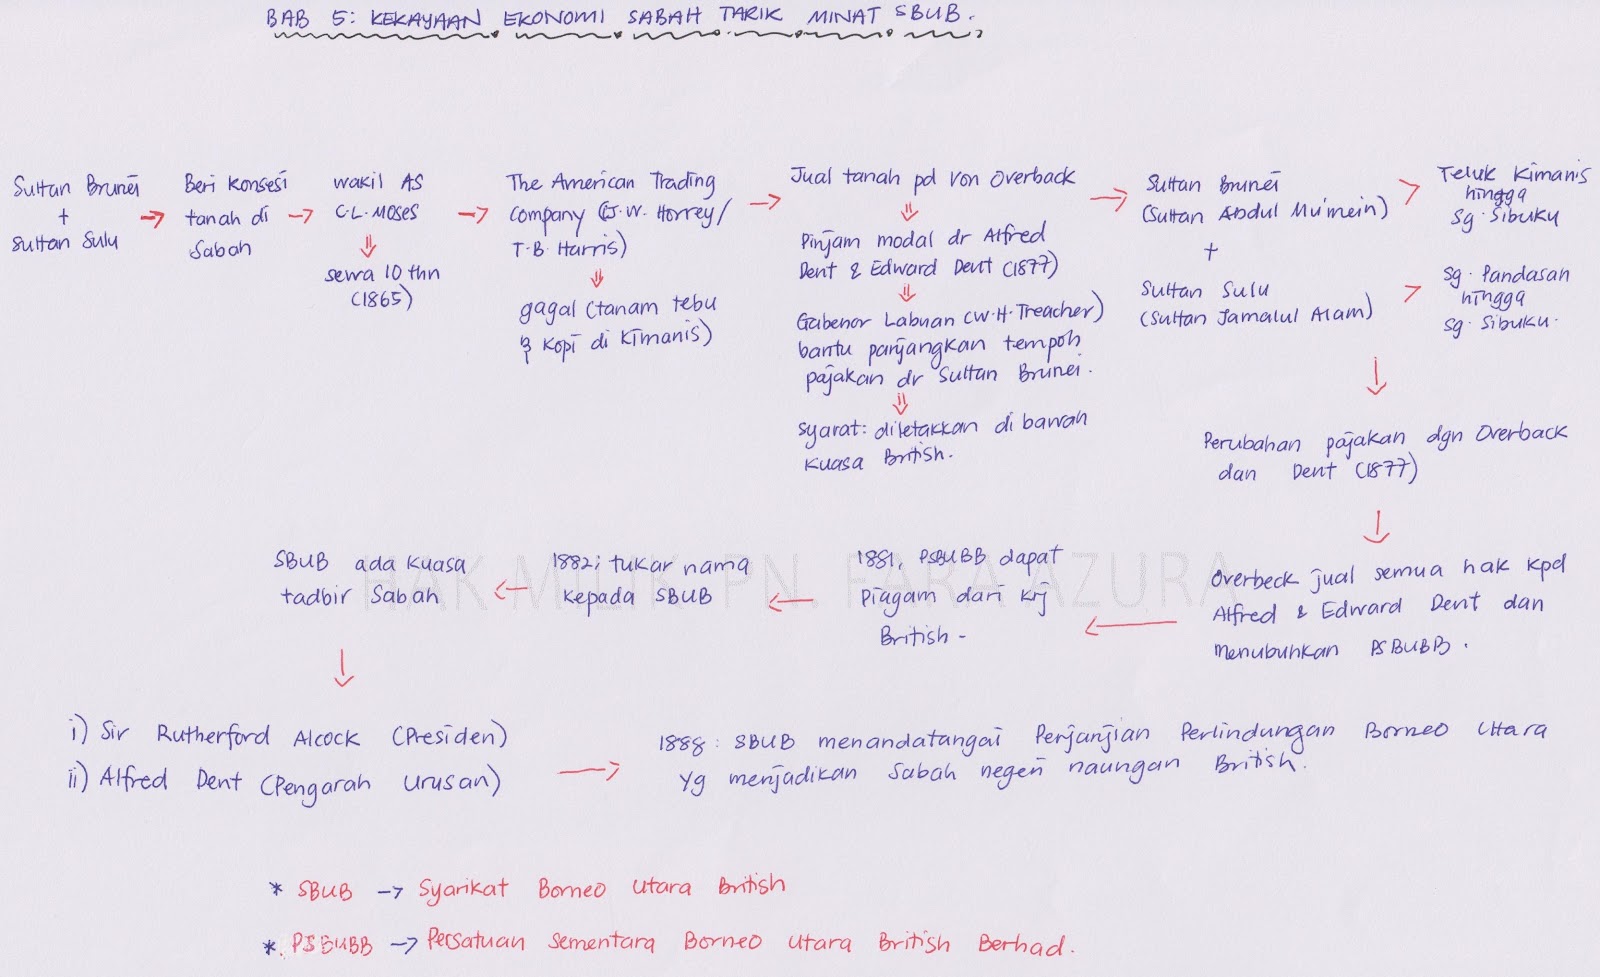 BAB 5: KEKAYAAN EKONOMI SABAH TARIK MINAT SBUB.
Sultan Brunei
+
Sultan Sulu
Beri Konsesi
tanah di
Sabah
wakil AS
C.L. MOSES
sewa 10 thn
(1865)
The American Trading
Company (J.W. Horrey/
T.B. Harris)
gagal (tanam tebu
& Kopi di Kimanis)
Jual tanah pd Von Overback
Pinjam modal dr Alfred
Dent & Edward Dent (1877)
Gabenor Labuan (W.H. Treacher)
bantu panjangkan tempoh
pajakan dr Sultan Brunei.
Syarat: diletakkan di bawah
Kuasa British.
Sultan Brunei
(Sultan Abdul Mu'mein)
+
Sultan Sulu
(Sultan Jamalul Alam)
Teluk Kimanis
hingga
Sg. Sibuku
Sg. Pandasan
hingga
Sg. Sibuku.
Perubahan pajakan dgn Overback
dan Dent (1877)
Overbeck jual semua hak kpd
Alfred & Edward Dent dan
menubuhkan PSBUBB.
1881, PSBUBB dapat
Piagam dari Krj
British -
1882; tukar nama
kepada SBUB
SBUB ada kuasa
tadbir Sabah
HAK MILIK PN. FARA AZURA
i) Sir Rutherford Alcock (Presiden)
ii) Alfred Dent (Pengarah Urusan)
1888: SBUB menandatangai Perjanjian Perlindungan Borneo Utara
Yg menjadikan Sabah negeri naungan British.
* SBUB → Syarikat Borneo Utara British
* PSBUBB → Persatuan Sementara Borneo Utara British Berhad.